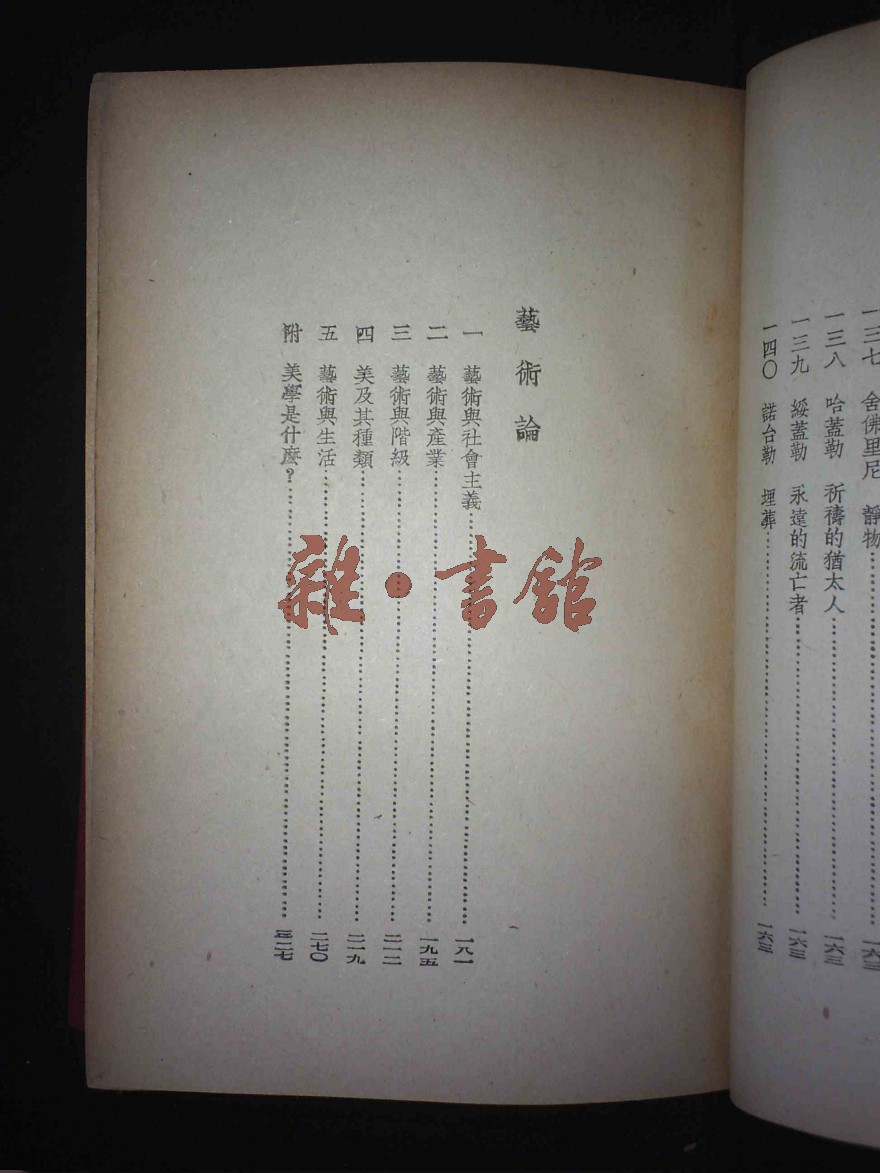 一三七 舍佛里尼 靜物……一六三
一三八 哈蓋勒 祈禱的猶太人……一六三
一三九 綏蓋勒 永遠的流亡者……一六三
一四〇 諾台勒 埋葬……一六三
藝術論
一 藝術與社會主義……一八一
二 藝術與產業……一九五
三 藝術與階級……二一二
四 美及其種類……二一九
五 藝術與生活……二七〇
附 美學是什麼？……二七
雜·書館